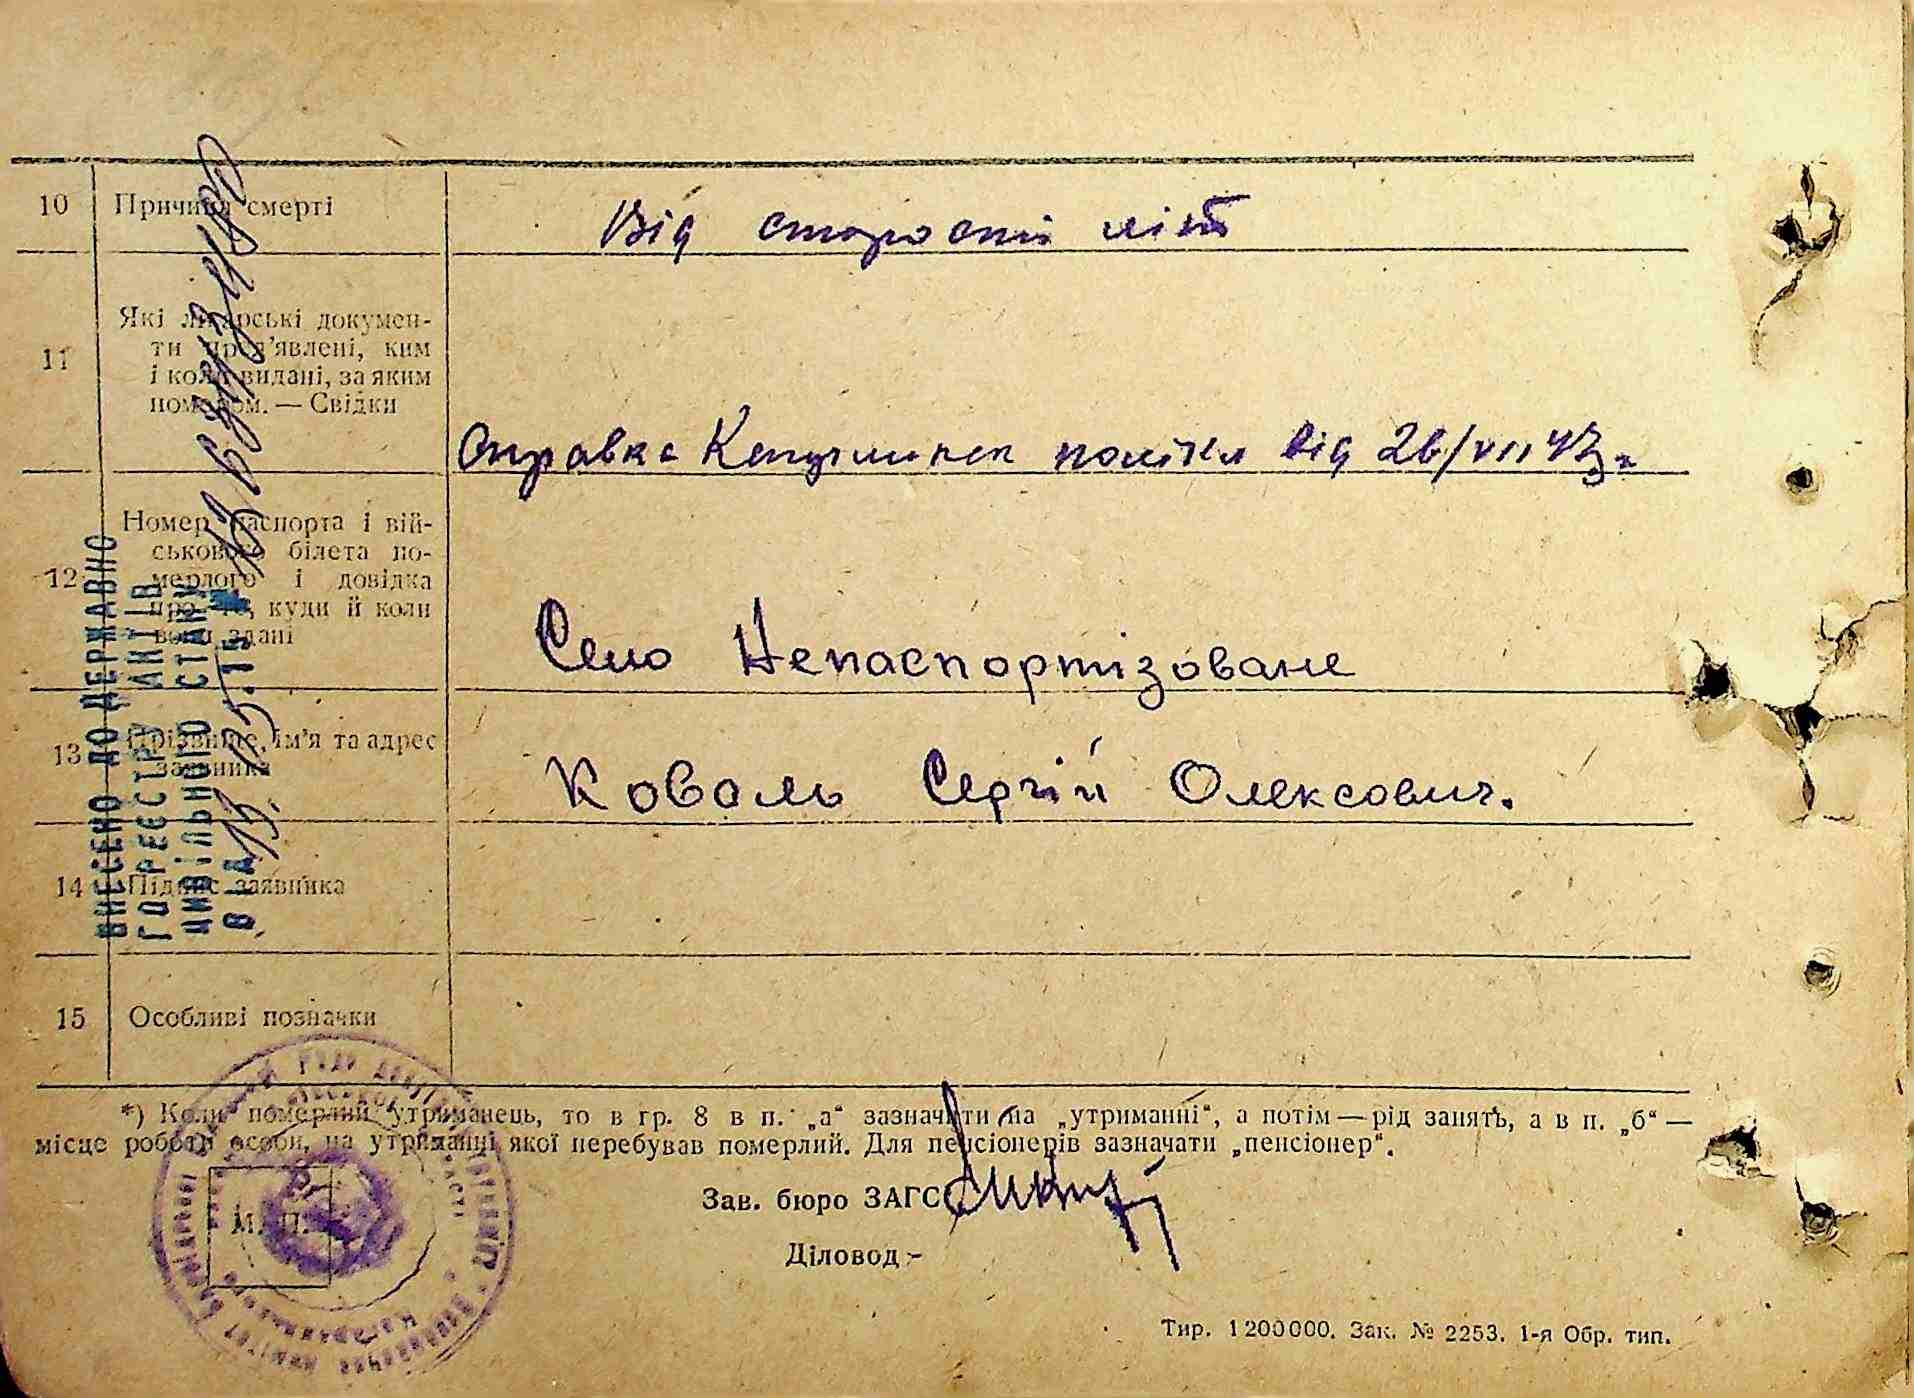 10 Причина смерті
Від старости літ
11 Які лікарські докумен-
ти пред'явлені, ким
і коли видані, за яким
номером. — Свідки
Справка від 26/VII 43 р.
12 Номер паспорта і вій-
ськового білета по-
мерлого і довідка
про те, куди й коли
вони здані
Село Непаспортізоване
13 Прізвище, ім'я та адрес
заявника
Коваль Сергій Олексович.
14 Підпис заявника
15 Особливі позначки
*) Коли померлий утриманець, то в гр. 8 в п. „а“ зазначити на „утриманні“, а потім — рід занять, а в п. „б“ —
місце роботи особи, на утриманні якої перебував померлий. Для пенсіонерів зазначати „пенсіонер“.
Зав. бюро ЗАГС
М. П.
Діловод -
Тир. 1200000. Зак. № 2253. 1-я Обр. тип.
ВНЕСЕНО ДО ДЕРЖАВНО
ГО РЕЄСТРУ АКТІВ
ЦИВІЛЬНОГО СТАНУ
ВІД